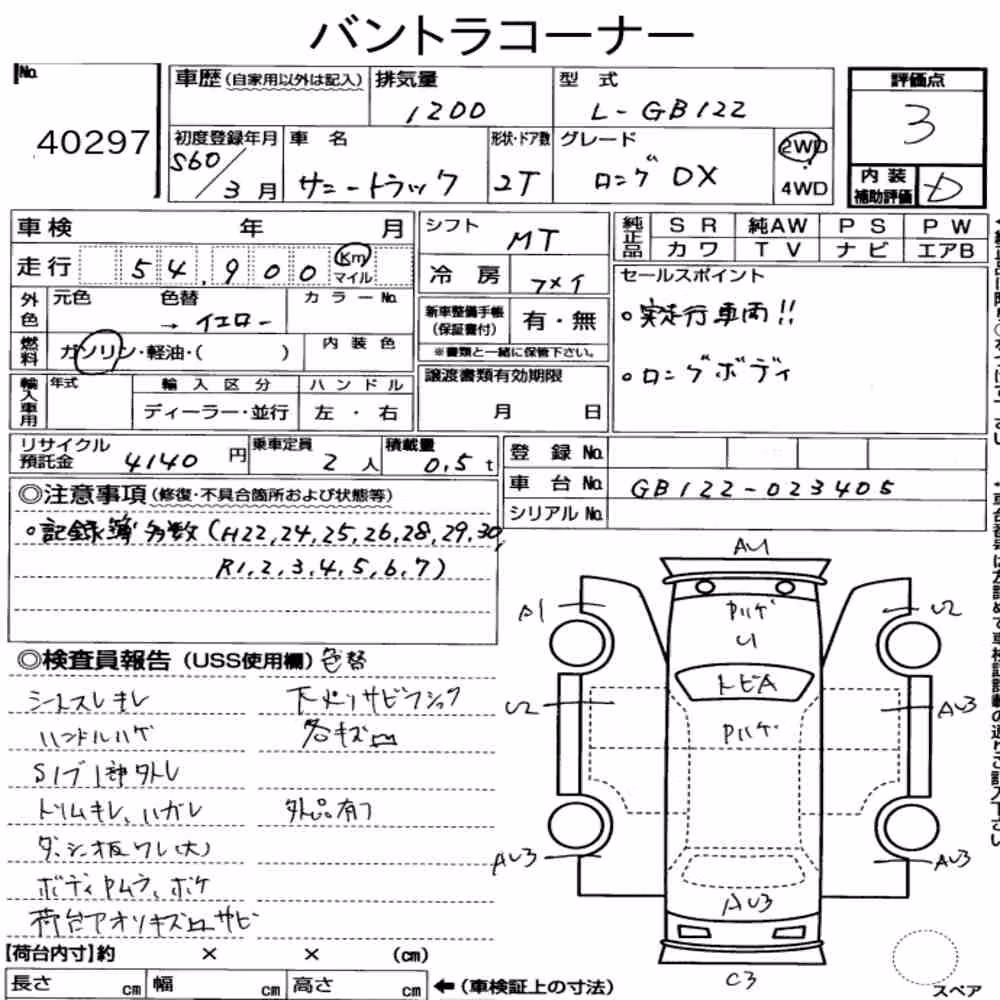 バントラコーナー
No. 40297
車歴(自家用以外は記入)
排気量 1200
型式 L-GB122
評価点 3
初度登録年月 S60/3月
車名 サニートラック
形状・ドア数 2T
グレード ロングDX
2WD
4WD
内装補助評価 D
車検 年 月
走行 54,900 Km マイル
外色 元色 色替 → イエロー カラーNo.
燃料 ガソリン・軽油・( ) 内装色
輸入車用 年式 輸入区分 ハンドル
ディーラー・並行 左・右
シフト MT
冷房
新車整備手帳(保証書付) 有・無
※書類と一緒に保管下さい。
譲渡書類有効期限
月 日
純正品 SR 純AW PS PW
カワ TV ナビ エアB
セールスポイント
○実走行車両!!
○ロングボディ
リサイクル預託金 4140円
乗車定員 2人
積載量 0.5t
登録No.
車台No. GB122-023405
シリアルNo.
◎注意事項(修復・不具合箇所および状態等)
○記録簿多数(H22,24,25,26,28,29,30,
R1,2,3,4,5,6,7)
◎検査員報告(USS使用欄)色替
シートスレキレ
ハンドルハゲ
トリムキレ、ハガレ
ダッシュ板ワレ(大)
ボディPムラ、ボケ
荷台アオリキズ凹サビ
各キズ凹
外品有り
AU1
A1
U2
Pハゲ
U1
トビA
U2
AU3
Pハゲ
AU3
AU3
AU3
C3
スペア
【荷台内寸】約 × × (cm)
長さ cm 幅 cm 高さ cm ←(車検証上の寸法)